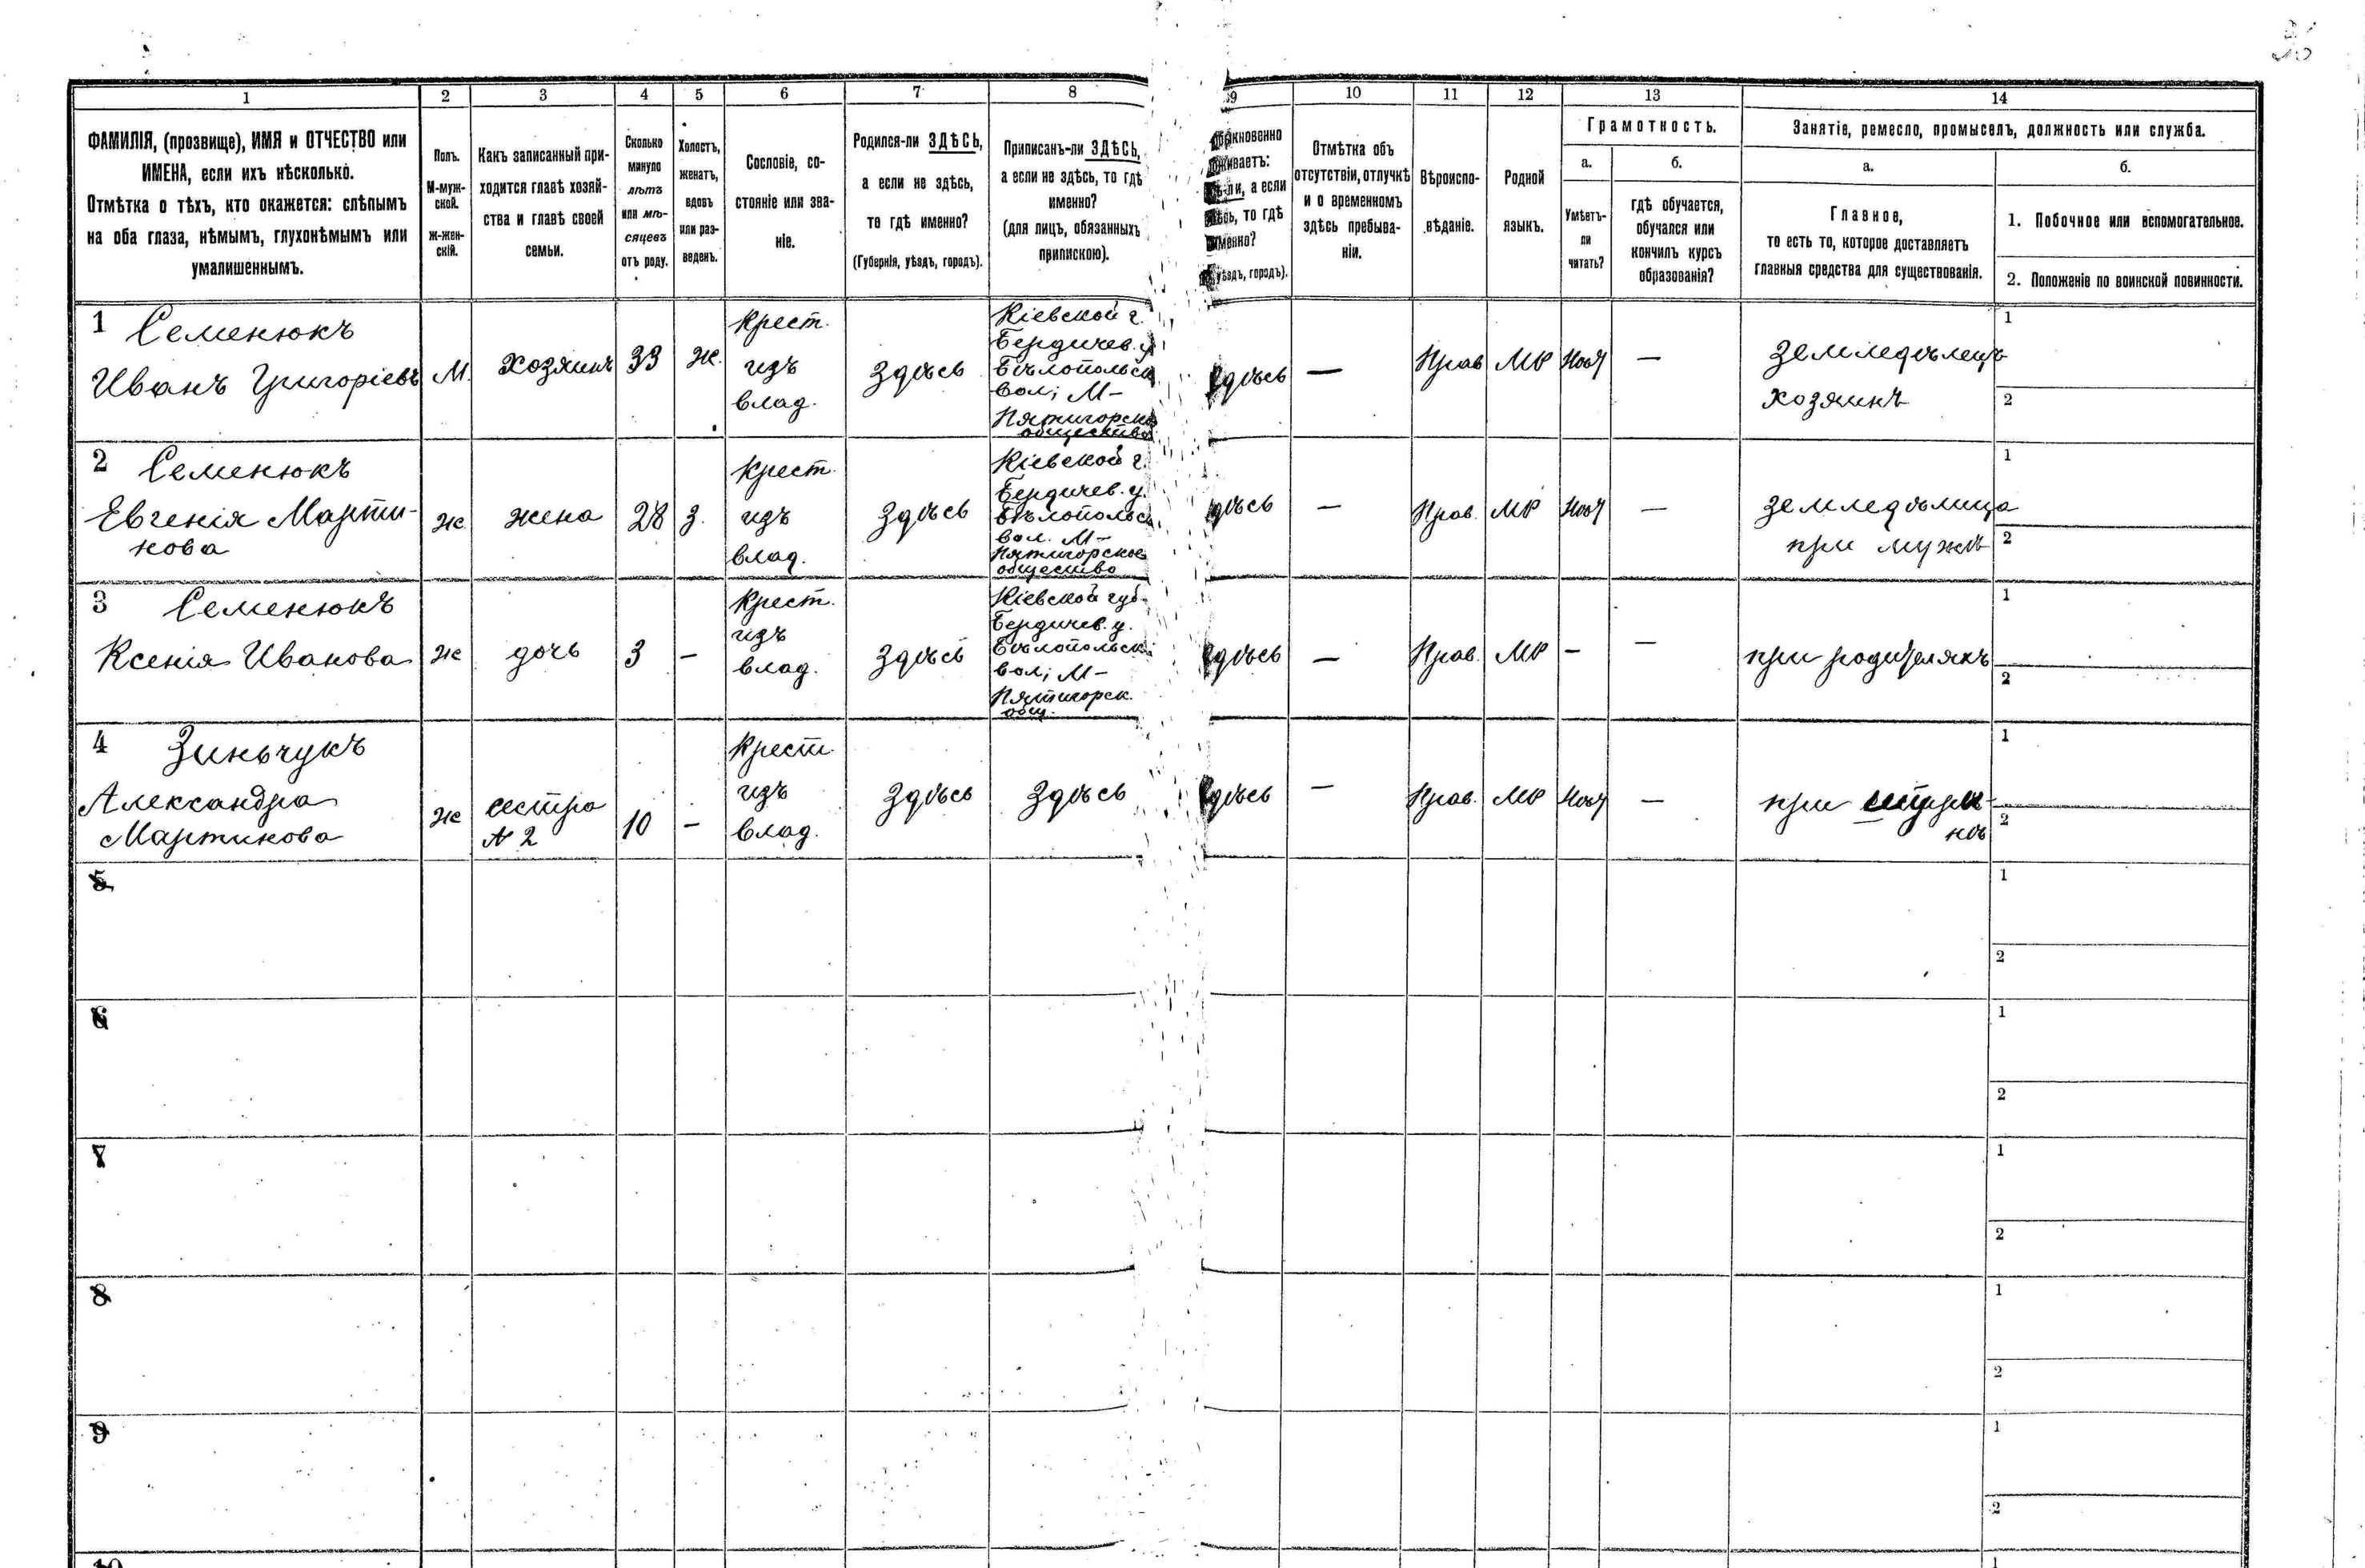 1
2
3
4
5
6
7
8
9
10
11
12
13
14
ФАМИЛІЯ, (прозвище), ИМЯ и ОТЧЕСТВО или
ИМЕНА, если ихъ нѣсколько.
Отмѣтка о тѣхъ, кто окажется: слѣпымъ
на оба глаза, нѣмымъ, глухонѣмымъ или
умалишеннымъ.
Полъ.
М-муж-
ской.
Ж-жен-
скій.
Какъ записанный при-
ходится главѣ хозяй-
ства и главѣ своей
семьи.
Сколько
минуло
лѣтъ
или мѣ-
сяцевъ
отъ роду.
Холостъ,
женатъ,
вдовъ
или раз-
веденъ.
Сословіе, со-
стояніе или зва-
ніе.
Родился-ли ЗДѢСЬ,
а если не здѣсь,
то гдѣ именно?
(Губернія, уѣздъ, городъ).
Приписанъ-ли ЗДѢСЬ,
а если не здѣсь, то гдѣ
именно?
(для лицъ, обязанныхъ
припискою).
а если
то гдѣ
уѣздъ, городъ).
Отмѣтка объ
отсутствіи, отлучкѣ
и о временномъ
здѣсь пребыва-
ніи.
Вѣроиспо-
вѣданіе.
Родной
языкъ.
Грамотность.
а.
Умѣетъ-
ли
читать?
б.
гдѣ обучается,
обучался или
кончилъ курсъ
образованія?
Занятіе, ремесло, промыселъ, должность или служба.
а.
Главное,
то есть то, которое доставляетъ
главныя средства для существованія.
б.
1. Побочное или вспомогательное.
2. Положеніе по воинской повинности.
1 Семенюкъ
Иванъ Григоріевъ
М.
хозяинъ
33
ж.
Крест.
изъ
влад.
здѣсь
Кіевской г.
Бердичев. у.
Бѣлопольск.
вол; М-
Пятигорско
общества
здѣсь
—
Прав
МР
—
земледѣлецъ
хозяинъ
1
2
2 Семенюкъ
Евгенія Марти-
нова
ж.
жена
28
з.
Крест.
изъ
влад.
здѣсь
Кіевской г.
Бердичев. у.
Бѣлопольск.
вол. М-
Пятигорское
общество
здѣсь
—
Прав.
МР
—
земледѣлица
при мужѣ
1
2
3 Семенюкъ
Ксенія Иванова
ж
дочь
3
—
Крест.
изъ
влад.
здѣсь
Кіевской губ.
Бердичев. у.
Бѣлопольск.
вол; М-
Пятигорск.
общ.
здѣсь
—
Прав.
МР
—
—
при родителяхъ
1
2
4 Зиньчукъ
Александра
Мартинова
ж
сестра
№ 2
10
—
Крест.
изъ
влад.
здѣсь
здѣсь
здѣсь
—
Прав.
МР
—
при
1
2
5
1
2
6
1
2
7
1
2
8
1
2
9
1
2
10
1